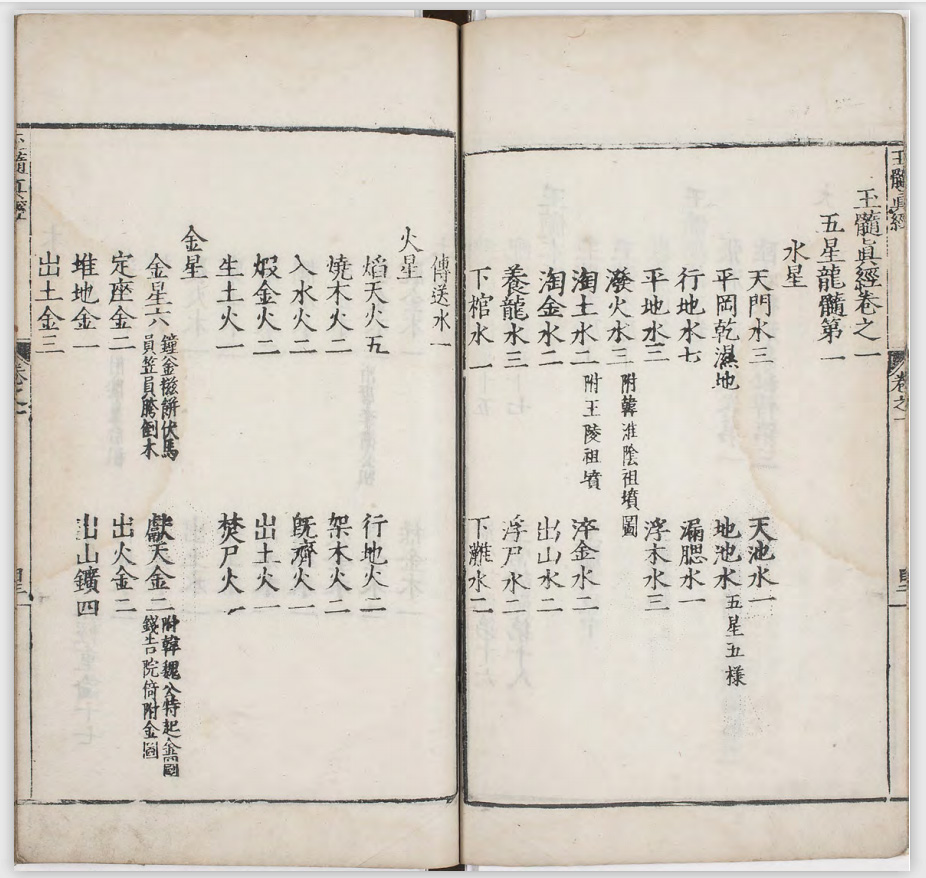 玉髓眞經
玉髓眞經卷之一
五星龍髓第一
水星
天門水三 天池水一
平岡乾濕地 地池水五星五樣
行地水七 漏腮水一
平地水三 浮木水三
潑火水三附韓淮陰祖墳圖
淘土水二附王陵祖墳 淬金水二
淘金水二 出山水二
養龍水三 浮尸水二
下棺水一 下灘水二
卷之一
目二
傳送水一
火星
焰天火五 行地火二
燒木火二 架木火二
入水火二 旣濟火一
煅金火二 出土火一
生土火一 焚尸火一
金星
金星六鐘釜磁餅伏馬員笠員騰倒木 獻天金二附韓魏公特起金圖錢吿院倚附金圖
定座金二 出火金二
堆地金一 出山鑛四
出土金三
玉髓眞經
卷之一